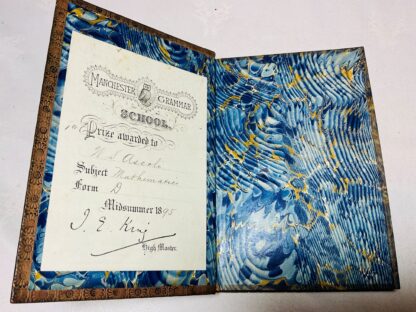 MANCHESTER GRAMMAR
SCHOOL.
Prize awarded to
Subject Mathematics
Form D
Midsummer 1895
J. E. King
High Master.